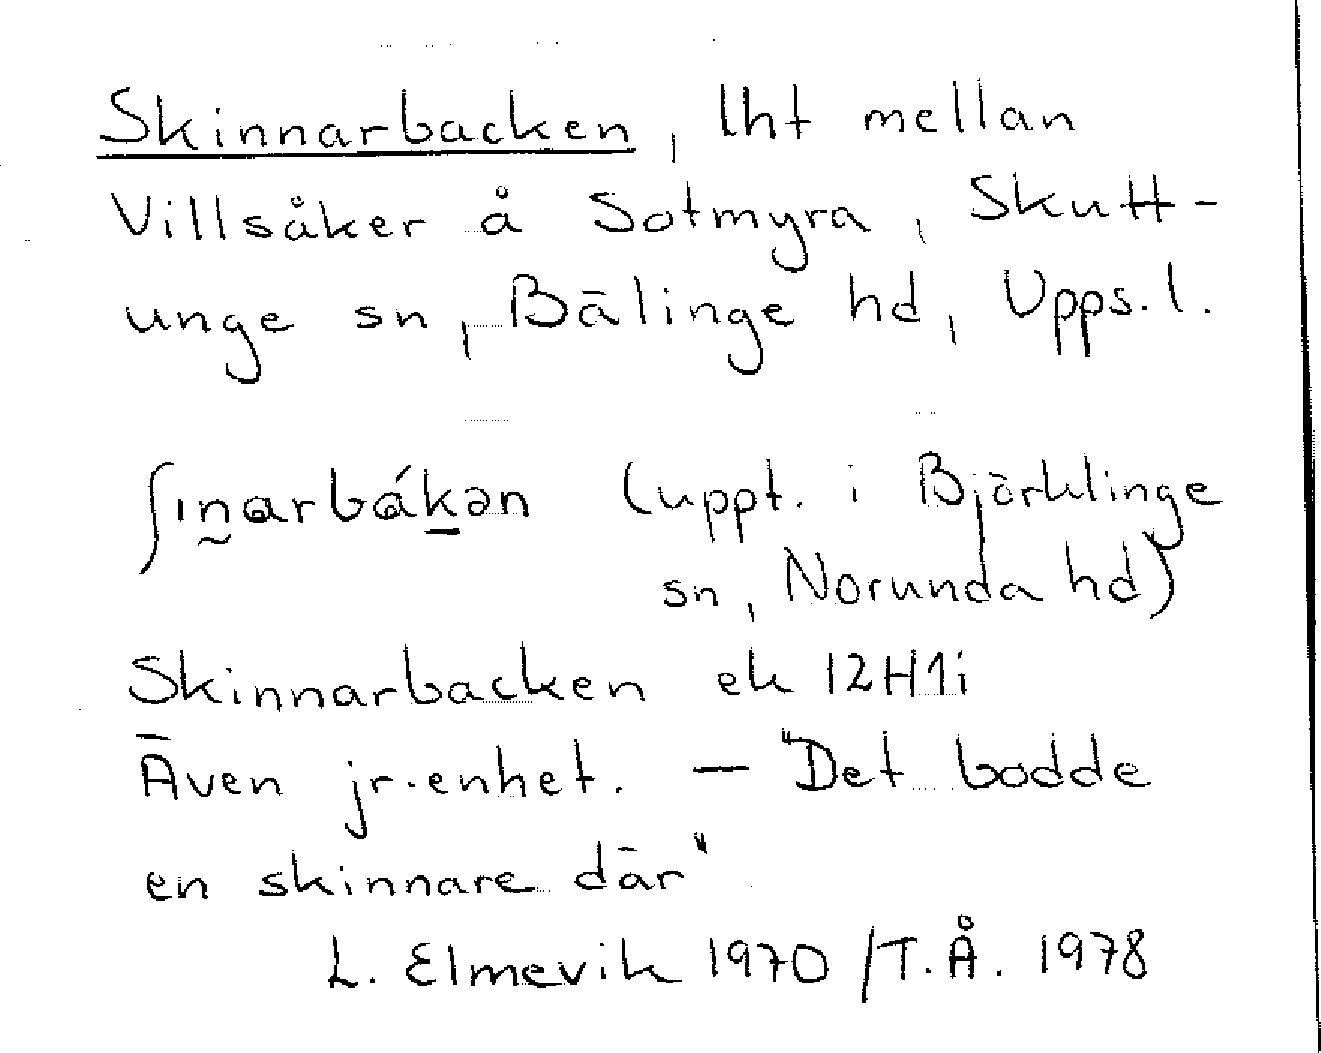 Skinnarbacken, lht mellan
Villsåker å Sotmyra, Skutt-
unge sn, Bälinge hd, Upps. l.
ʃın̰arbák̲ən (uppt. i Björklinge
sn, Norunda hd)
Skinnarbacken ek 12H1i
Även jr.enhet. — "Det bodde
en skinnare där"
L. Elmevik 1970 /T.Å. 1978